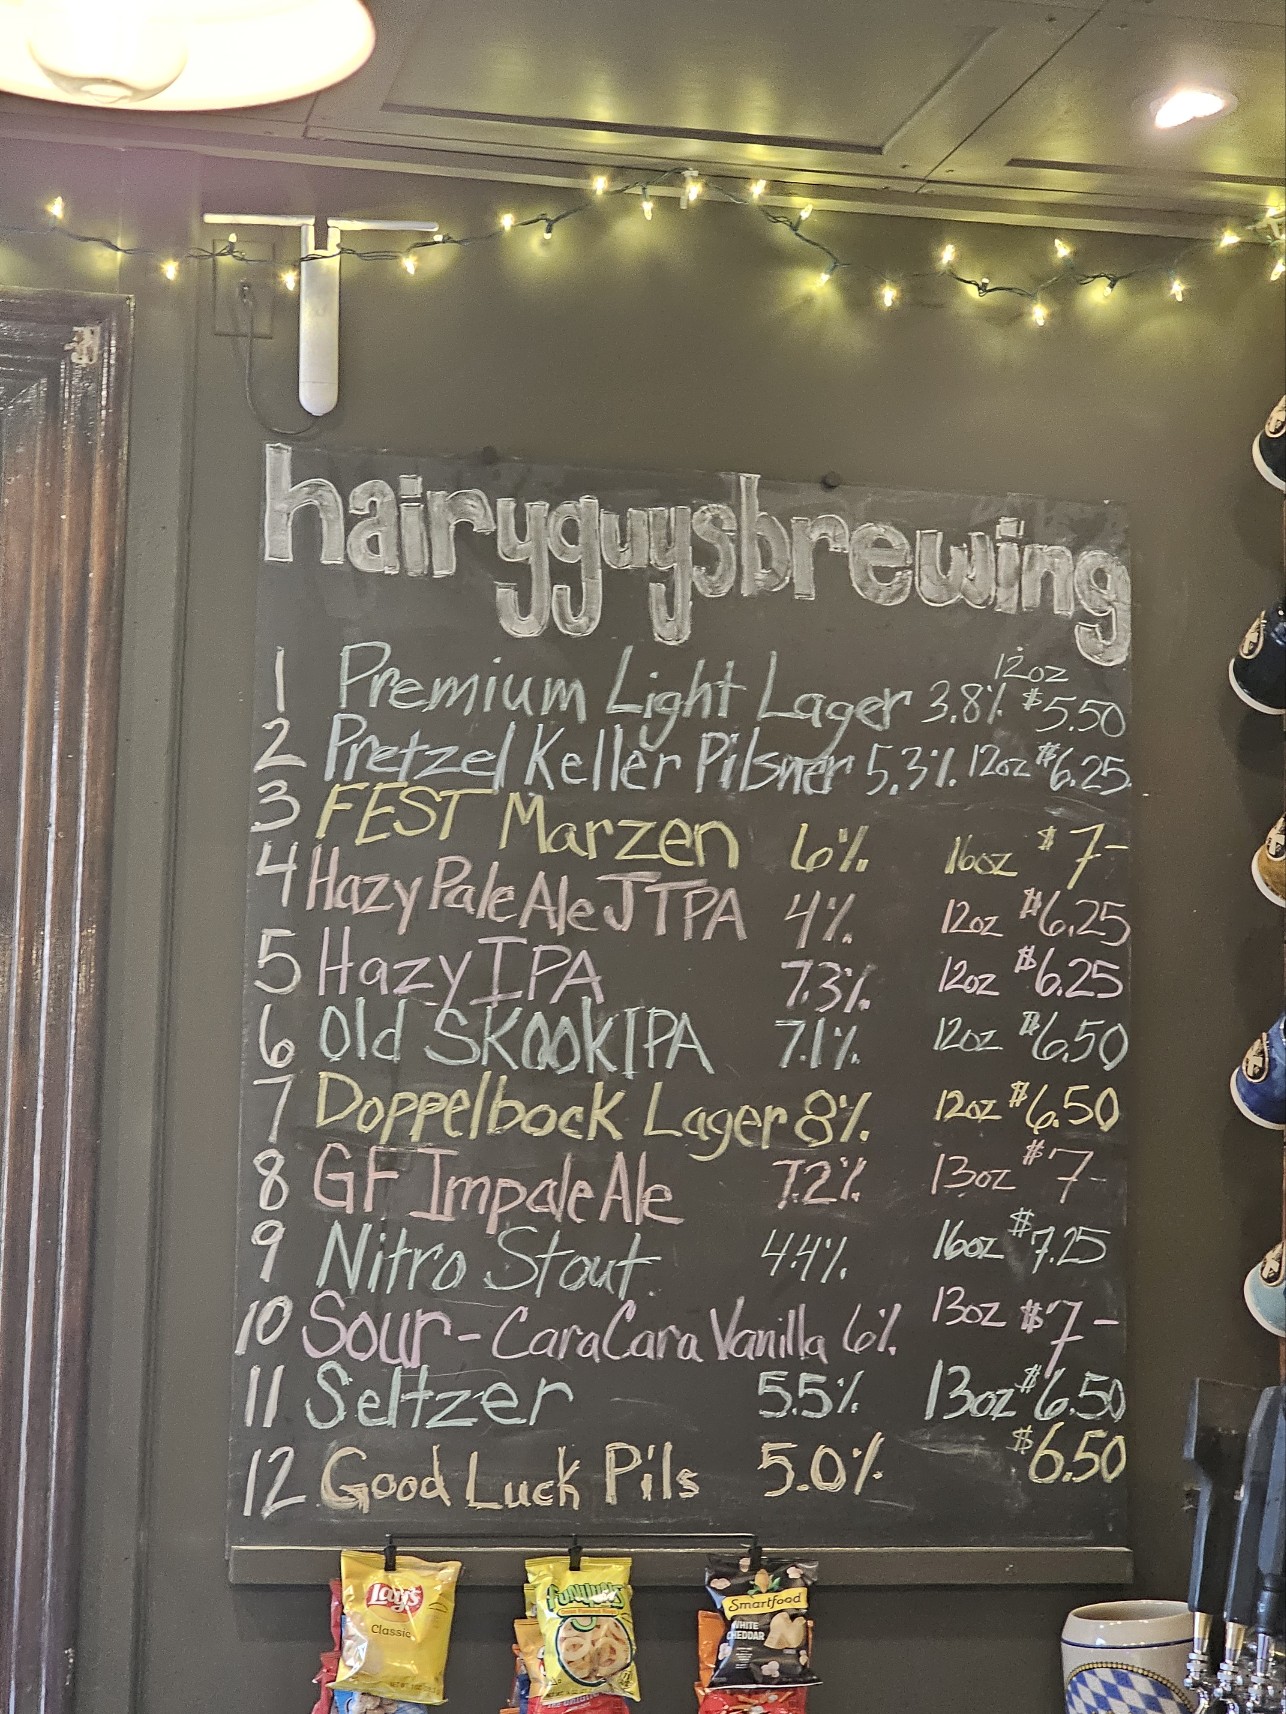 hairyguysbrewing
1 Premium Light Lager 3.8% 12oz $5.50
2 Pretzel Keller Pilsner 5.3% 12oz $6.25
3 FEST Marzen 6% 16oz $7-
4 Hazy Pale Ale JTPA 4% 12oz $6.25
5 Hazy IPA 7.3% 12oz $6.25
6 Old SKOOK IPA 7.1% 12oz $6.50
7 Doppelbock Lager 8% 12oz $6.50
8 GF Impale Ale 7.2% 13oz $7-
9 Nitro Stout 4.4% 16oz $7.25
10 Sour - CaraCara Vanilla 6% 13oz $7-
11 Seltzer 5.5% 13oz $6.50
12 Good Luck Pils 5.0% $6.50
Lay's
Classic
Funyuns
Smartfood
WHITE
CHEDDAR